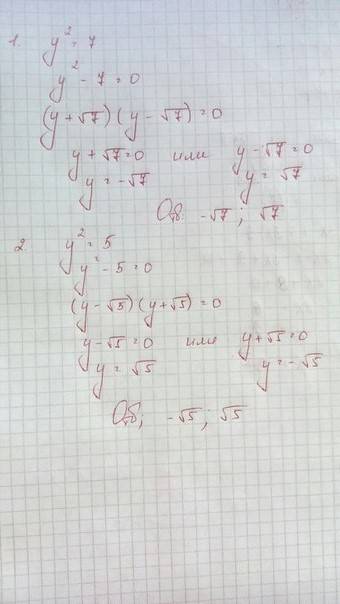 1. y² = 7
y² - 7 = 0
(y + √7)(y - √7) = 0
y + √7 = 0 или y - √7 = 0
y = -√7 y = √7
Отв. -√7; √7
2 y² = 5
y² - 5 = 0
(y - √5)(y + √5) = 0
y - √5 = 0 или y + √5 = 0
y = √5 y = -√5
Отв; -√5; √5